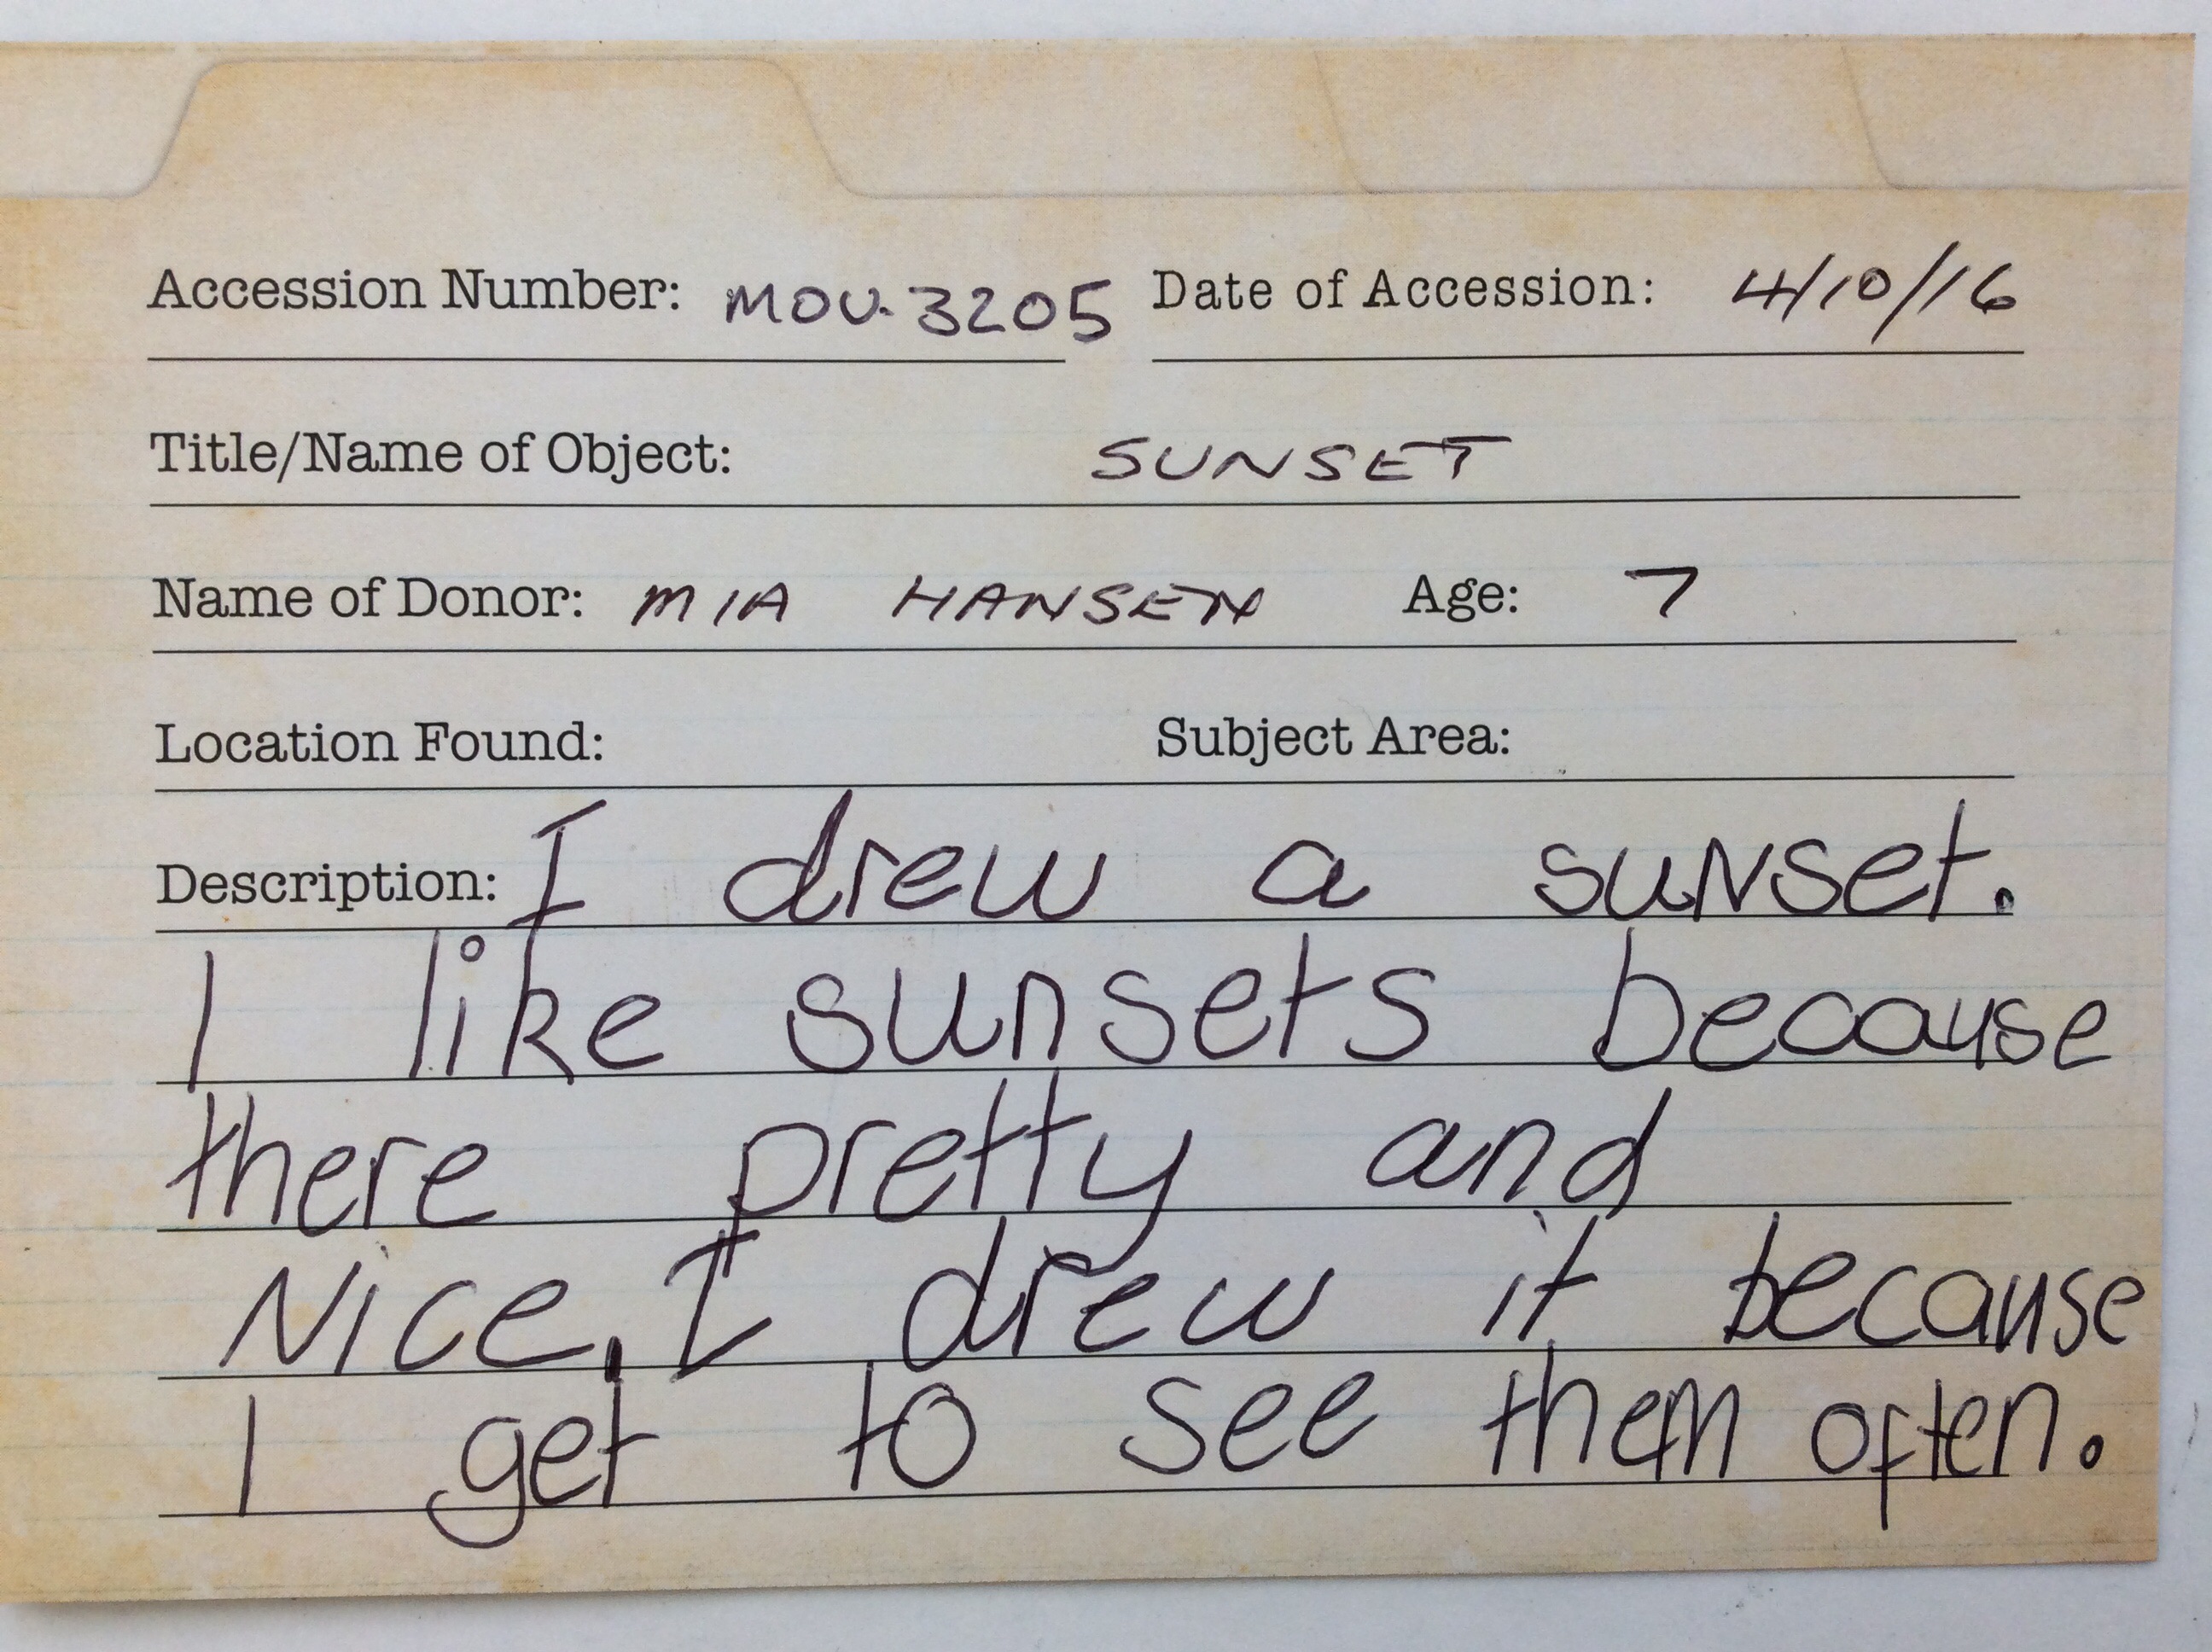 Accession Number: MOU.3205 Date of Accession: 4/10/16
Title/Name of Object: SUNSET
Name of Donor: MIA HANSEN Age: 7
Location Found: Subject Area:
Description: I drew a sunset.
I like sunsets because
there pretty and
Nice. I drew it because
I get to see them often.